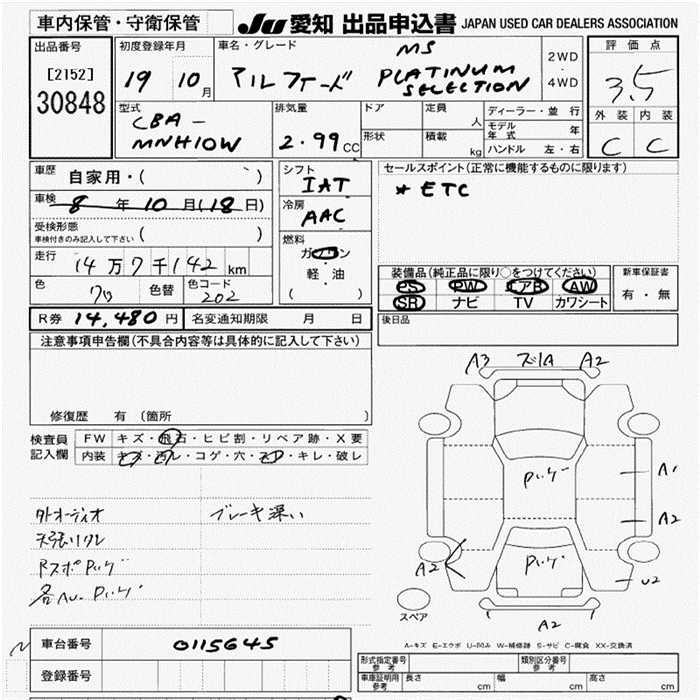 車内保管・守衛保管
Ju 愛知 出品申込書 JAPAN USED CAR DEALERS ASSOCIATION
出品番号
[2152]
30848
初度登録年月
19 10月
車名・グレード
アルファード
MS
PLATINUM
SELECTION
2WD
・
4WD
評価点
3.5
外装 内装
C C
型式
CBA-
MNH10W
排気量
2.99 CC
ドア
形状
定員
人
積載
kg
ディーラー・並行
モデル年式 年
ハンドル 左・右
車歴
自家用・( )
車検
8年 10月(18日)
受検形態
車検付きのみ記入して下さい ( )
走行
14万7千142 km
色
色替
色コード
202
シフト
IAT
冷房
AAC
燃料
ガソリン
軽・油
( )
セールスポイント(正常に機能するものに限ります)
* ETC
装備品(純正品に限り○をつけてください)
PS PW エアB AW
SR ナビ TV カワシート
新車保証書
有・無
後日品
R券 14,480円
名変通知期限 月 日
注意事項申告欄(不具合内容等は具体的に記入して下さい)
修復歴 有 (箇所 )
検査員
記入欄
FW キズ・飛石・ヒビ割・リペア跡・X要
内装 キズ・汚レ・コゲ・穴・スレ・キレ・破レ
外オーディオ
ブレーキ深い
A3 ズレA A2
A1
A2
A2
U2
A2
スペア
A-キズ E-エクボ U-凹み W-補修跡 S-サビ C-腐食 XX-交換済
車台番号
0115645
登録番号
形式指定番号
参考
類別区分番号
参考
車庫証明用
参考
長さ cm
幅 cm
高さ cm